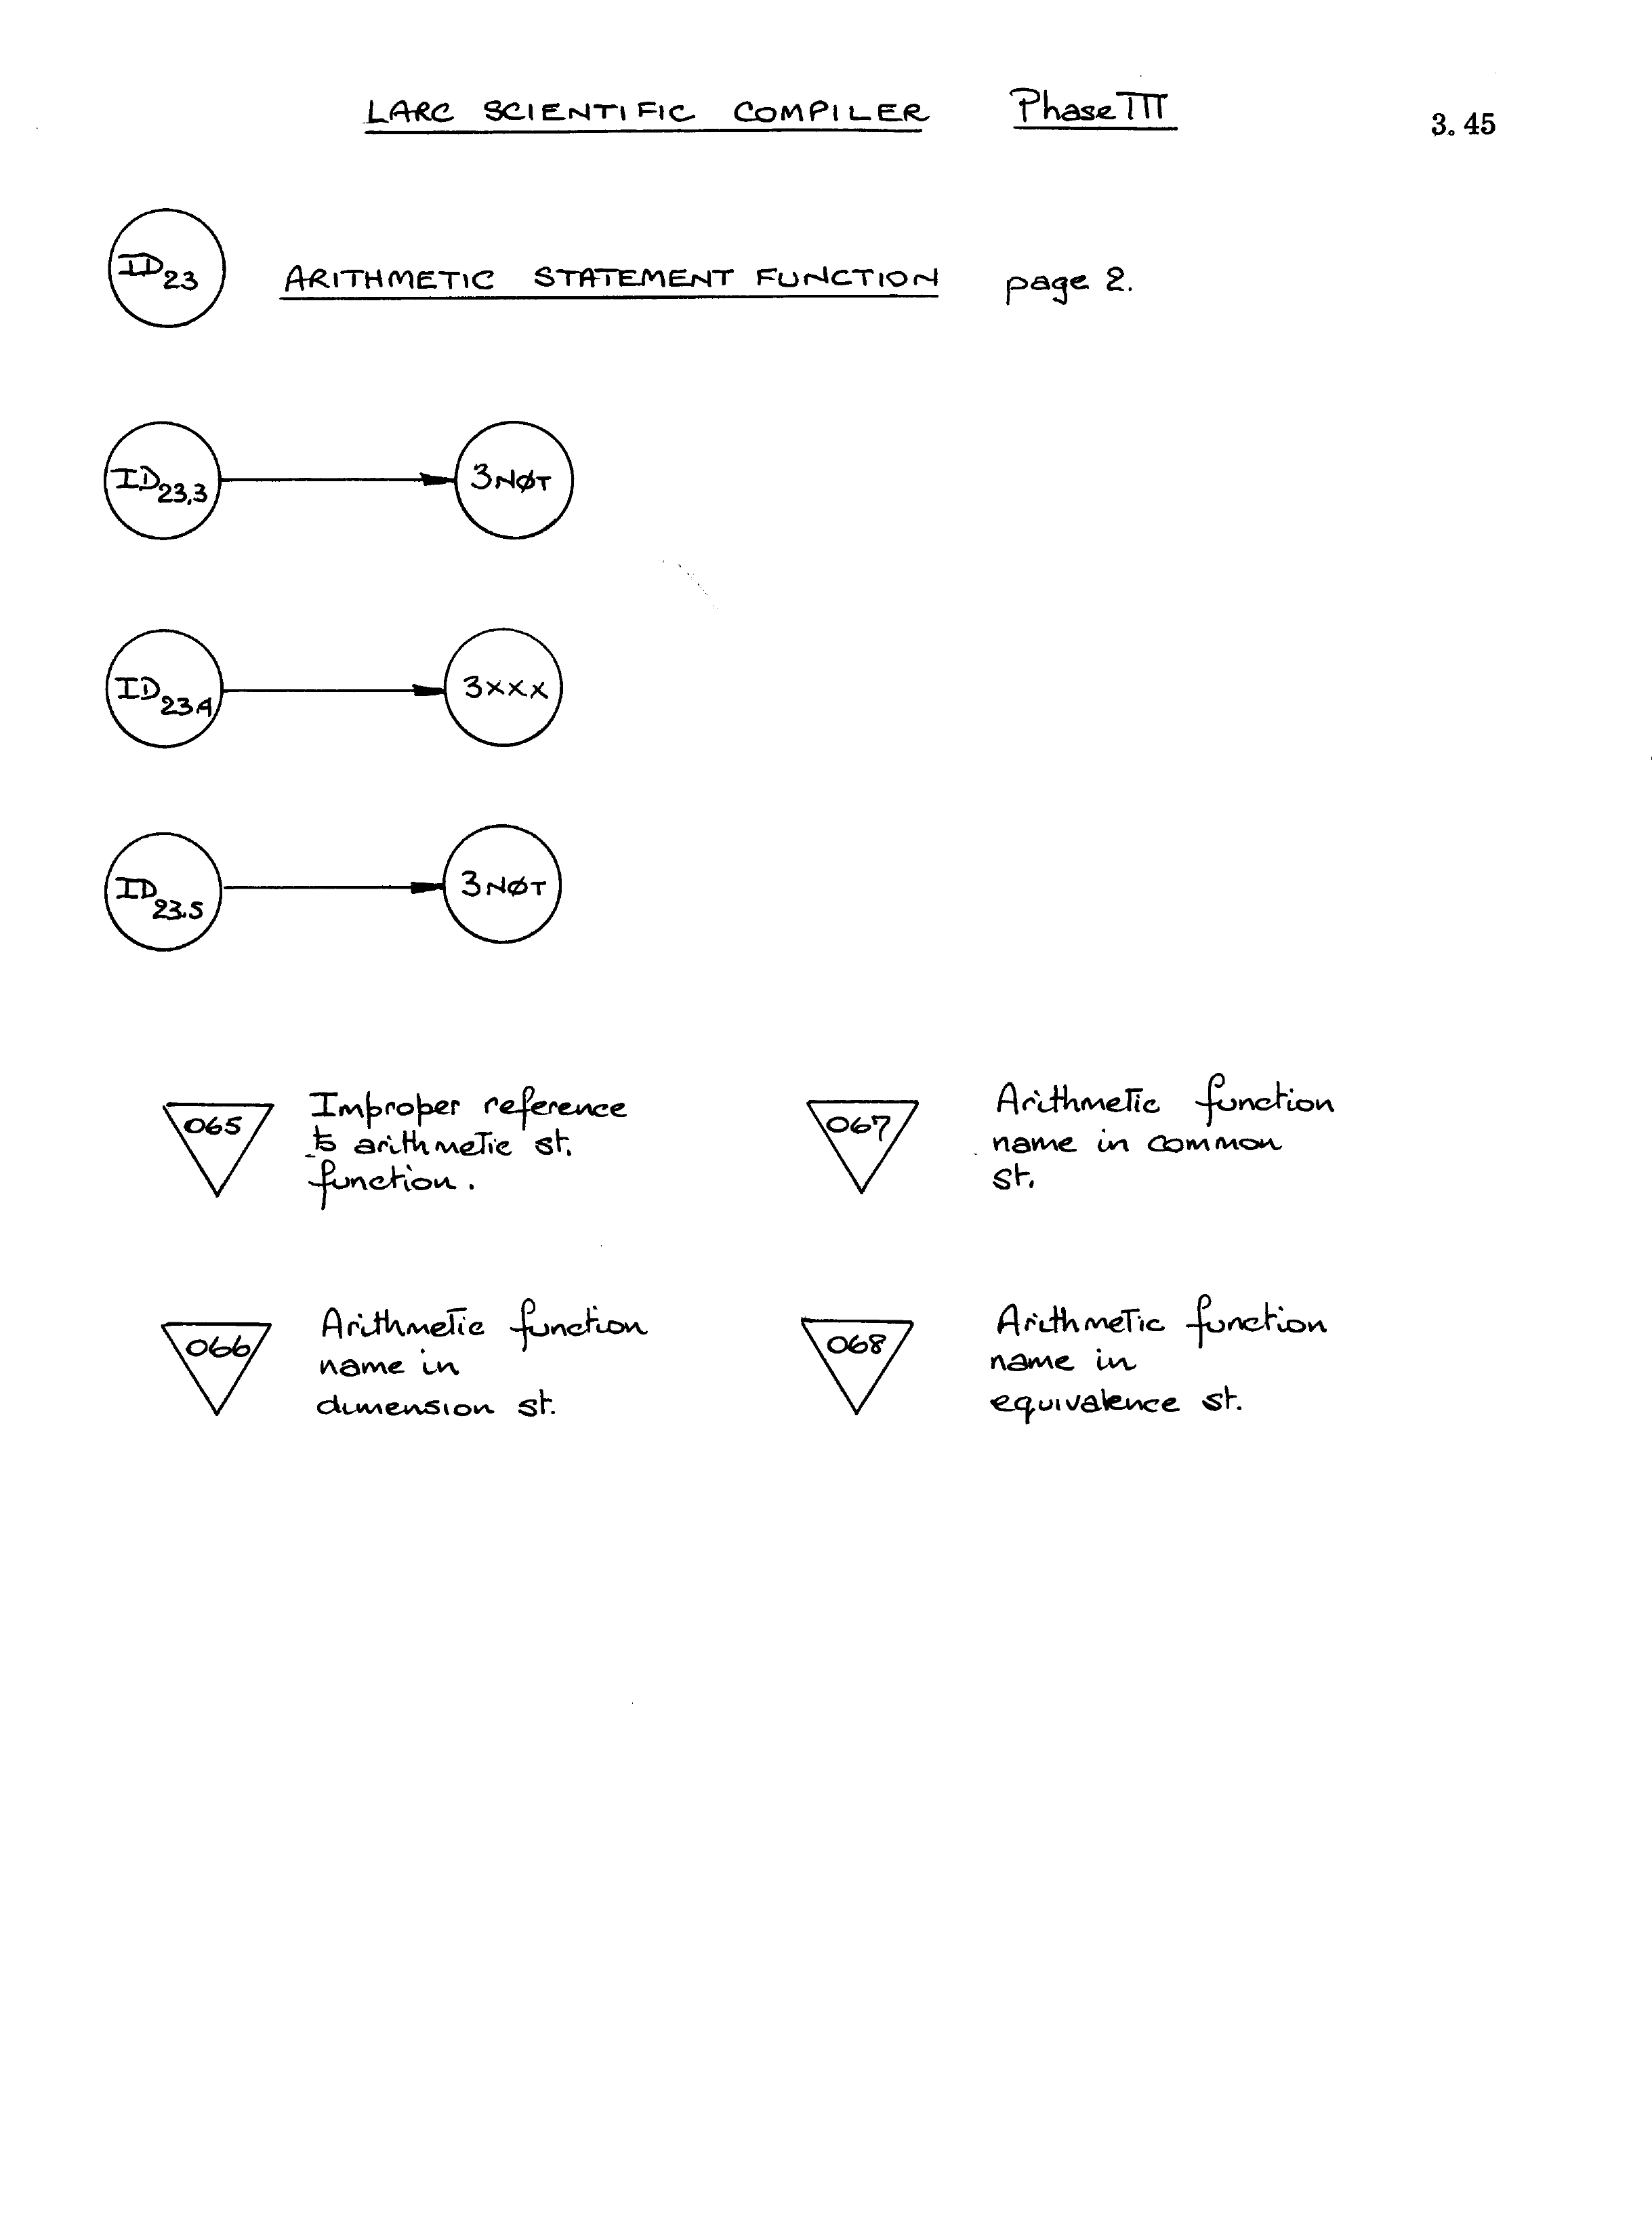 LARC SCIENTIFIC COMPILER Phase III
3.45
ID23 ARITHMETIC STATEMENT FUNCTION page 2.
ID23,3 3NØT
ID23.4 3XXX
ID23.5 3NØT
065
Improper reference
to arithmetic st.
function.
067
Arithmetic function
name in common
st.
066
Arithmetic function
name in
dimension st.
068
Arithmetic function
name in
equivalence st.